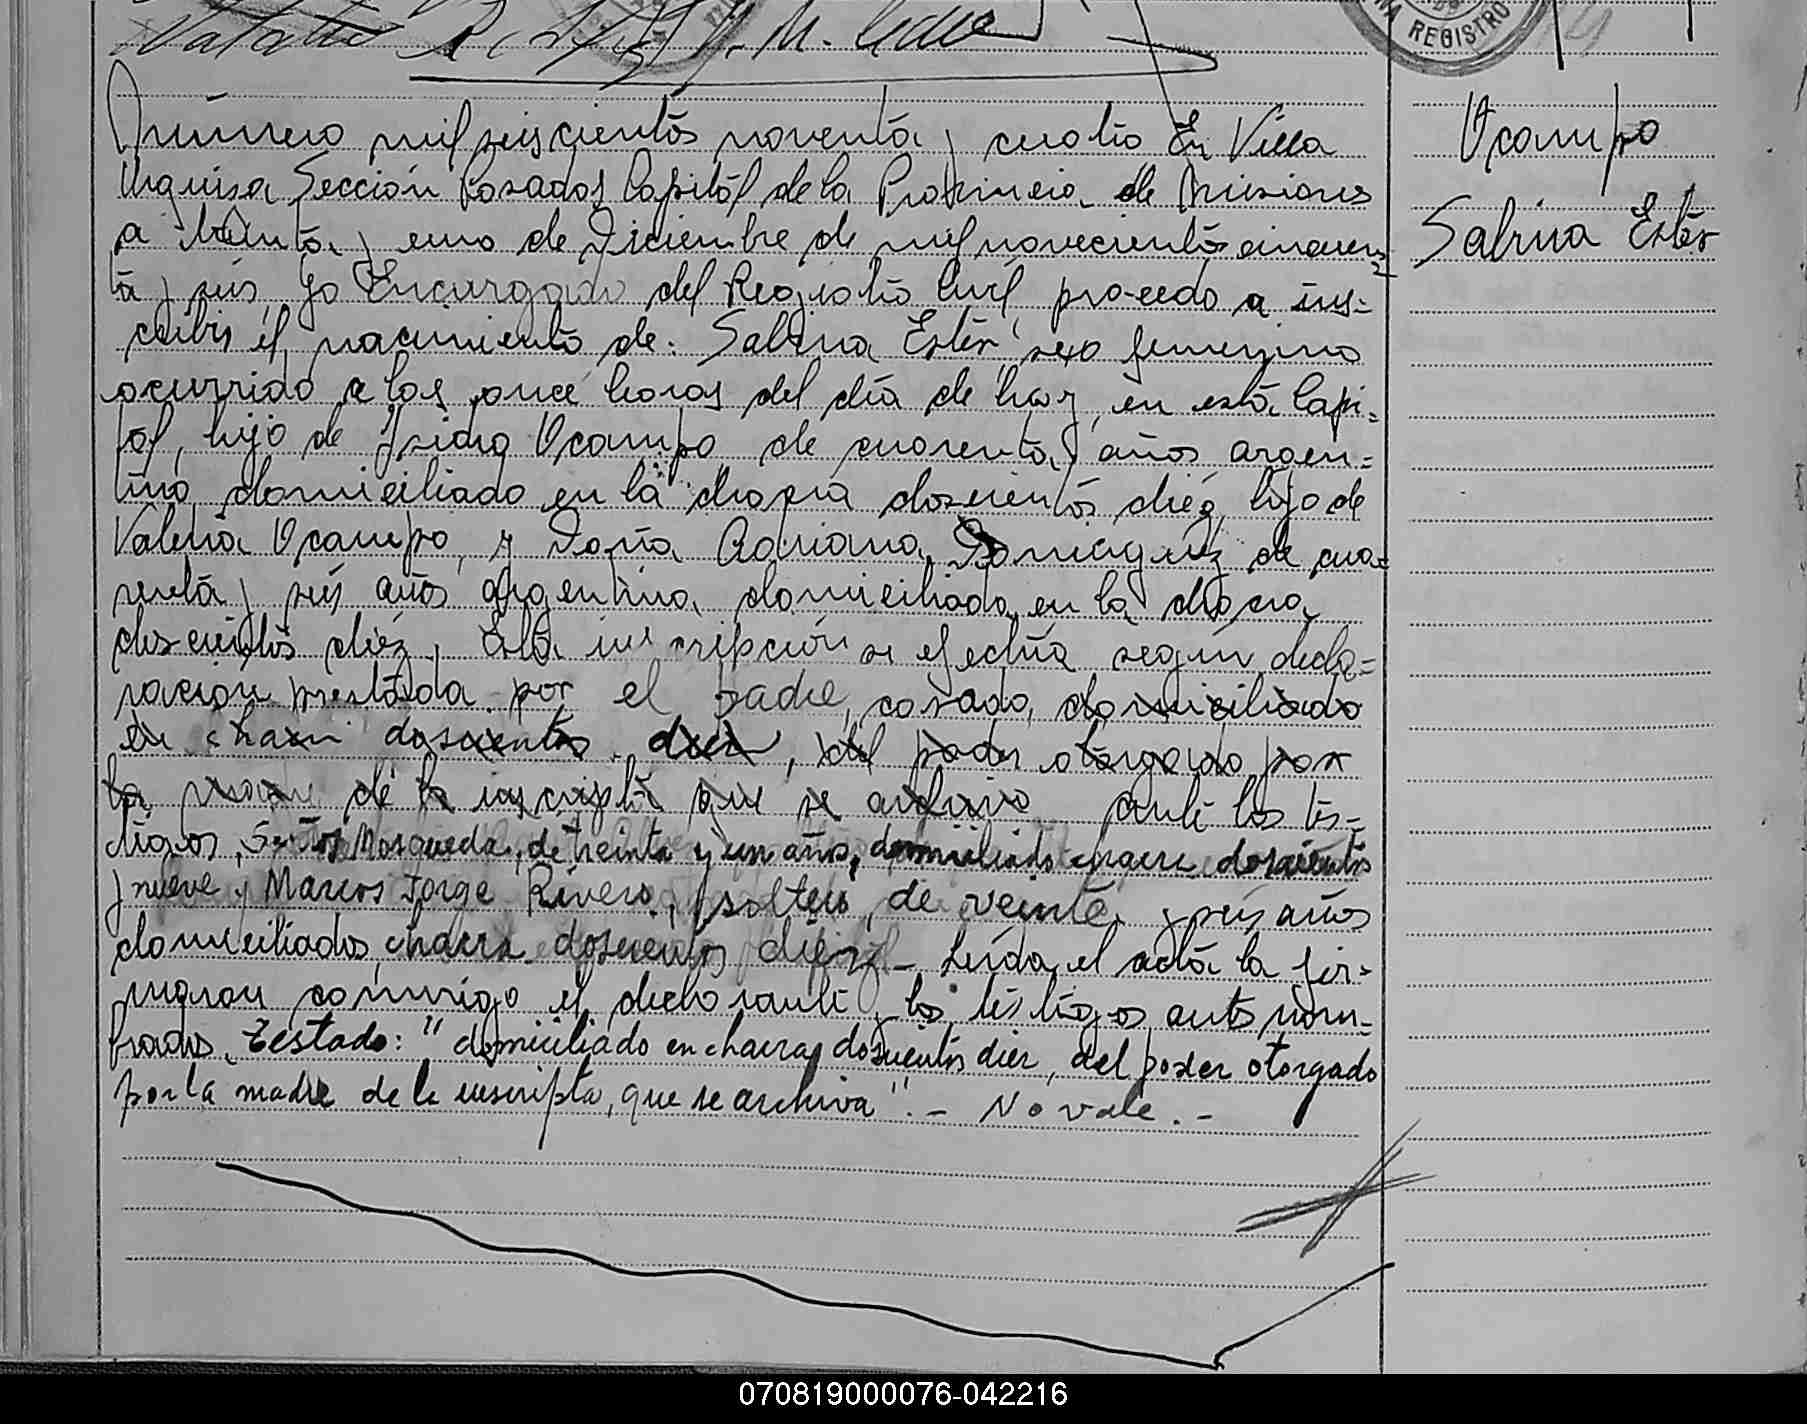 REGISTRO
Número mil seiscientos noventa y cuatro En Villa
Urquiza Sección Posadas Capital de la Provincia de Misiones
a treinta y uno de Diciembre de mil novecientos cincuen=
ta y seis, yo Encargado del Registro Civil, procedo a ins=
cribir el nacimiento de: Sabina Ester, sexo femenino
ocurrido a las once horas del día de hoy, en esta Capi=
tal, hijo de Isidro Ocampo de cuarenta años argen=
tino domiciliado en la chacra doscientos diez, hijo de
Ocampo, y Doña de cua=
renta y seis años argentina domiciliada en la chacra
doscientos diez. Esta inscripción se efectúa según decla=
ración prestada por el padre, casado, domiciliado
en chacra doscientos diez, del poder otorgado por
la madre de la inscripta que se archiva ante los tes=
tigos, Mosqueda, de treinta y un años, domiciliado chacra doscientos
nueve y Marcos Jorge Rivero, soltero, de veinte y seis años
domiciliados, chacra doscientos diez.- Leída el acta la fir=
maron conmigo el declarante y los testigos antes nom=
brados. Testado: "domiciliado en chacra doscientos diez, del poder otorgado
por la madre de la inscripta, que se archiva".- No vale.-
Ocampo
Sabina Ester
070819000076-042216